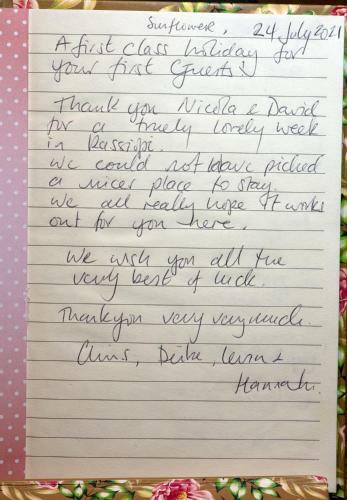 Sunflower, 24 July 2021
A first class holiday for
your first Guests!
Thank you Nicola & David
for a truely lovely week
in Kassiopi.
we could not have picked
a nicer place to stay.
We all really hope it works
out for you here.
We wish you all the
very best of luck.
Thankyou very verymuch.
Chris,
Hannah.